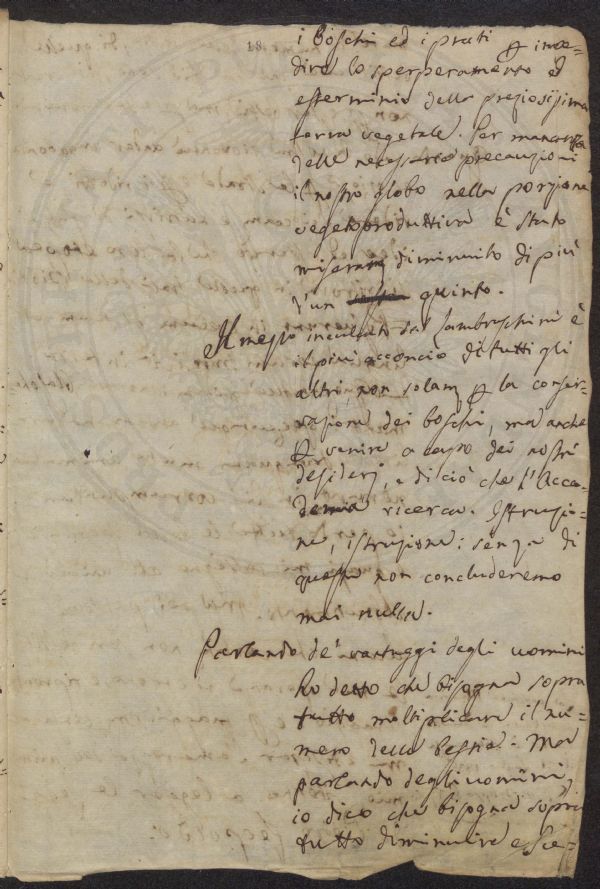 18.
i boschi ed i prati ꝑ impe-
dire lo sperperamento ed
esterminio della preziosissima
terra vegetale. Per mancanza
delle necessarie precauzioni
il nostro globo nella porzione
vegetoproduttiva è stato
miseram diminuito di più
d'un quinto.
Il mezzo inculcato dal Lambruschini è
il più acconcio di tutti gli
altri, non solam ꝑ la conser-
vazione dei boschi, ma anche
ꝑ venire a capo dei nostri
desiderj, e di ciò che l'Acca-
demia ricerca. Istruzio-
ne, istruzione: senza di
questa non concluderemo
mai nulla.
Parlando de' vantaggi degli uomini
ho detto che bisogna sopra
tutto moltiplicare il nu-
mero delle bestie. Ma
parlando degli uomini,
io dico che bisogna sopra
tutto diminuire e sce-